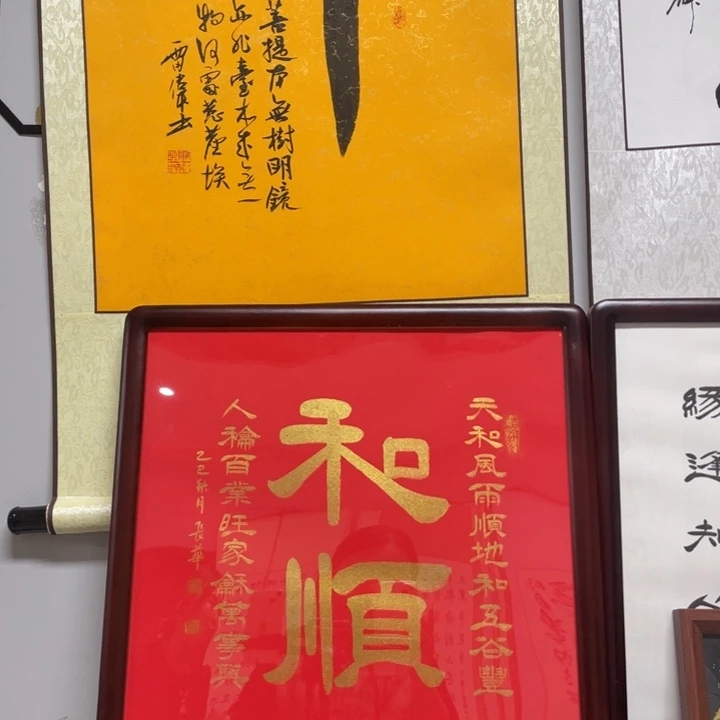 菩提本無樹明鏡
亦非臺本來無一
物何處惹塵埃
天和風雨順地和五谷豐
和順
人稐百業旺家龢萬事興
乙巳秋月 長華
緣逢知